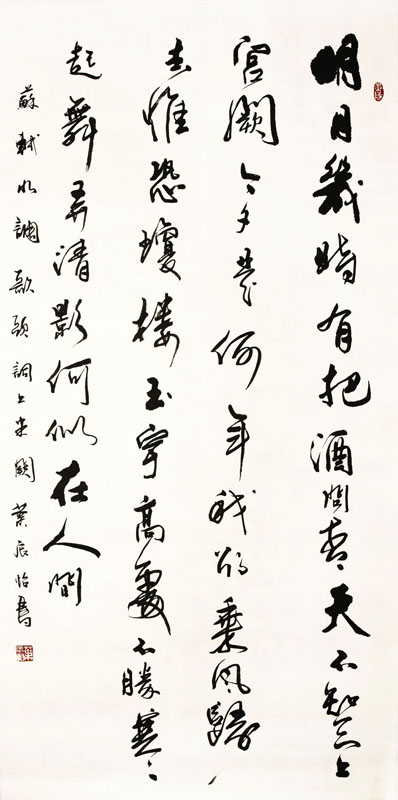 明月幾時有把酒問青天不知天上
宮闕今夕是何年我欲乘風歸
去惟恐瓊楼玉宇高處不勝寒
起舞弄清影何似在人間
蘇軾水調歌頭詞上半闋 葉辰怡書